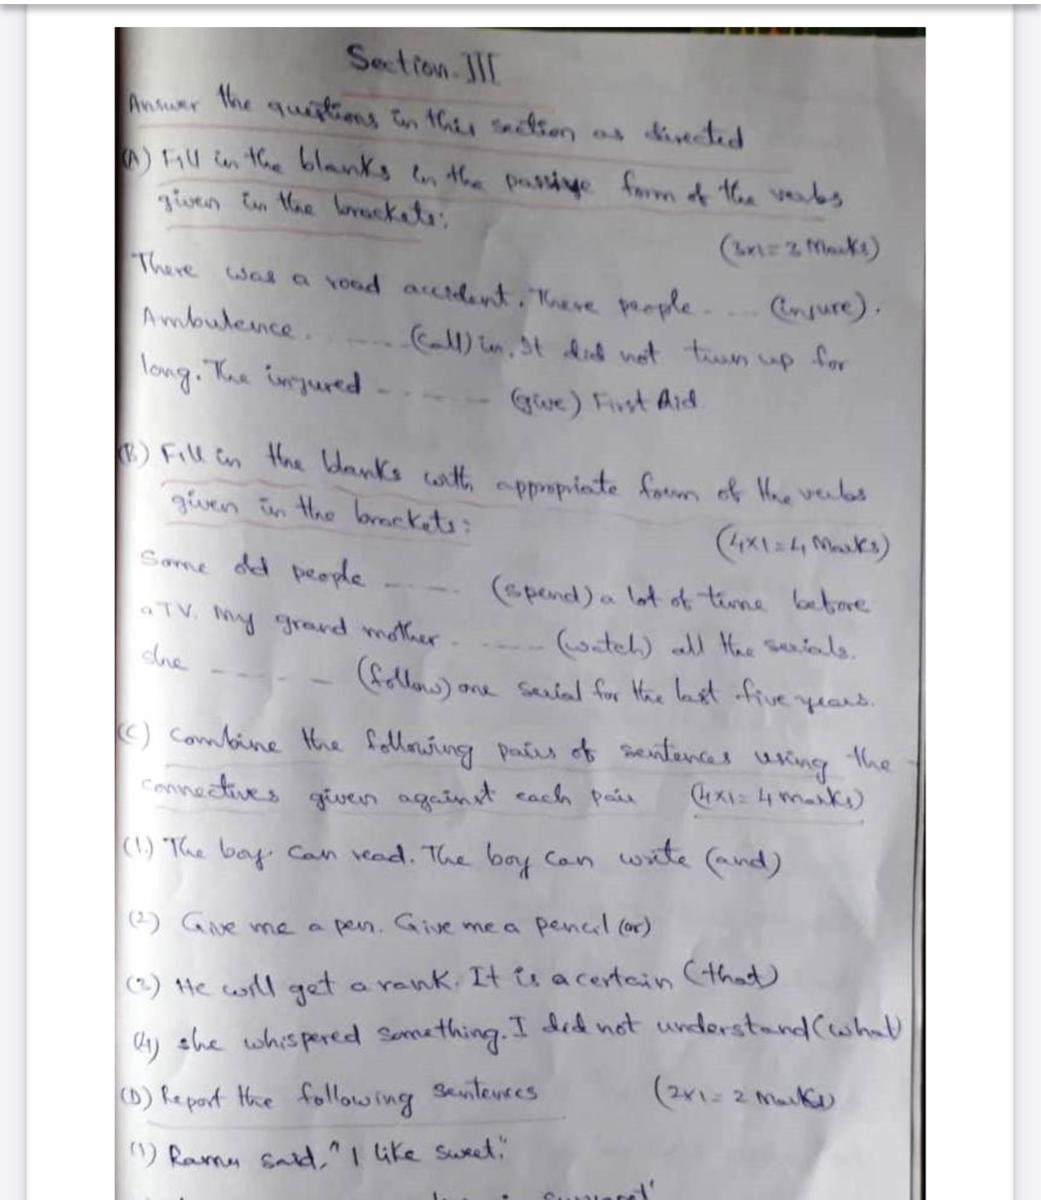 Section-III
Answer the questions in this section as directed
(A) Fill in the blanks in the passive form of the verbs
given in the brackets:
(3x1=3 Marks)
There was a road accident. There people ..... (injure).
Ambulence ....... (call) in. It did not turn up for
long. The injured ....... (give) First Aid
(B) Fill in the blanks with appropriate form of the verbs
given in the brackets:
(4x1=4 Marks)
Some old people ..... (spend) a lot of time before
a TV. My grand mother ..... (watch) all the serials.
she ----- (follow) one serial for the last five years.
(C) Combine the following pairs of sentences using the
connectives given against each pair (4x1=4 marks)
(1) The boy can read. The boy can write (and)
(2) Give me a pen. Give me a pencil (or)
(3) He will get a rank. It is a certain (that)
(4) she whispered something. I did not understand (what)
(D) Report the following sentences (2x1=2 Marks)
(1) Ramu said, "I like sweet."